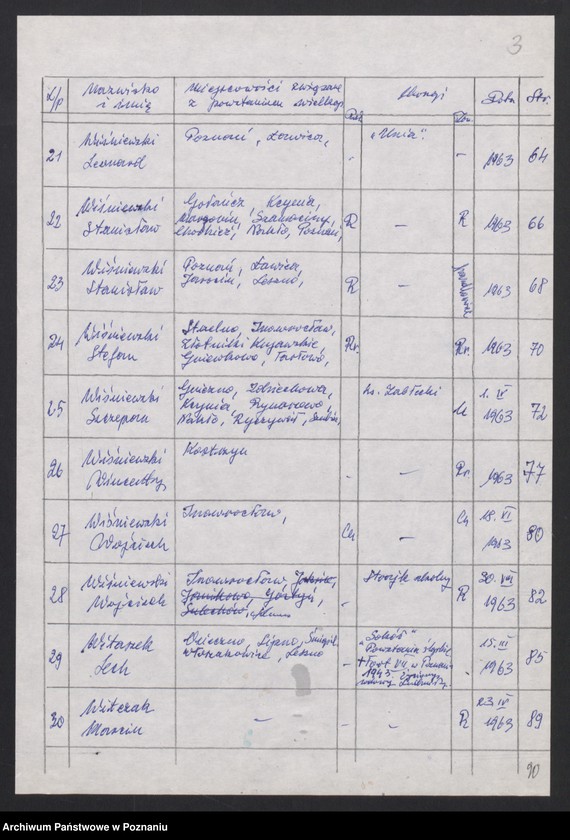 3
L/p Nazwisko i imię Miejscowości związane z powstaniem wielkop. Data Str.
21 Wiśniewski Leonard Poznań, Ławica, - „Unia". - 1963 64
22 Wiśniewski Stanisław Gołańcz, Kcynia, Margonin, Szamocin, Chodzież, Nakło, Poznań, R - R 1963 66
23 Wiśniewski Stanisław Poznań, Ławica, Jarocin, Leszno, R - 1963 68
24 Wiśniewski Stefan Inowrocław, Złotniki Kujawskie, Gniewkowo, Rr. Rr. 1963 70
25 Wiśniewski Szczepan Gniezno, Zdziechowa, Kcynia, Rynarzewo, Nakło, Ryczywół, Szubin, 1. IV 1963 72
26 Wiśniewski Wincenty Kostrzyn - - Rr. 1963 77
27 Wiśniewski Wojciech Inowrocław, Ch - Ch 18. VI 1963 80
28 Wiśniewski Wojciech Inowrocław, - R 30. VII 1963 82
29 Witasek Lech Osieczna, Lipno, Śmigiel, Leszno - „Sokół" Powstanie śląskie + Fort VII w Poznaniu 1943 - 15. III 1963 85
30 Witczak Marcin - - - R 23 IV 1963 89
90
Archiwum Państwowe w Poznaniu